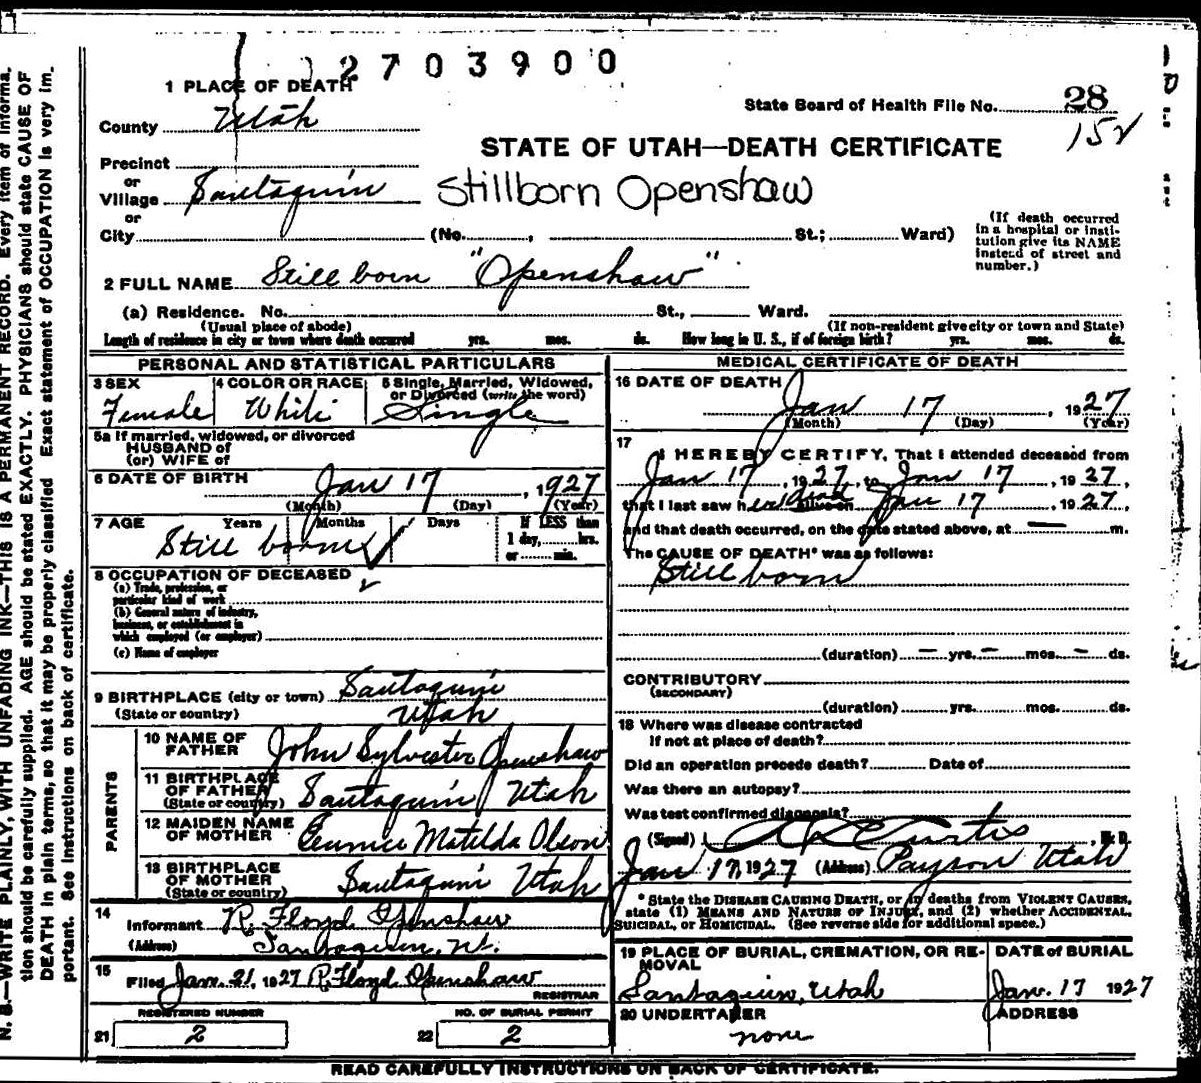 2703900
1 PLACE OF DEATH
State Board of Health File No. 28
152
County Utah
STATE OF UTAH—DEATH CERTIFICATE
Precinct
or
Village Santaquin
Stillborn Openshaw
or
City (No. , St.; Ward)
(If death occurred
in a hospital or insti-
tution give its NAME
instead of street and
number.)
2 FULL NAME Still born "Openshaw"
(a) Residence. No. St., Ward.
(Usual place of abode) (If non-resident give city or town and State)
Length of residence in city or town where death occurred yrs. mos. ds. How long in U. S., if of foreign birth? yrs. mos. ds.
PERSONAL AND STATISTICAL PARTICULARS
3 SEX 4 COLOR OR RACE 5 Single, Married, Widowed,
or Divorced (write the word)
Female White Single
5a If married, widowed, or divorced
HUSBAND of
(or) WIFE of
6 DATE OF BIRTH
Jan 17, 1927
(Month) (Day) (Year)
7 AGE Years Months Days If LESS than
1 day, hrs.
or min.
Still born
8 OCCUPATION OF DECEASED
(a) Trade, profession, or
particular kind of work
(b) General nature of industry,
business, or establishment in
which employed (or employer)
(c) Name of employer
9 BIRTHPLACE (city or town) Santaquin
(State or country) Utah
PARENTS
10 NAME OF
FATHER John Sylvester Openshaw
11 BIRTHPLACE
OF FATHER
(State or country) Santaquin Utah
12 MAIDEN NAME
OF MOTHER Eunice Matilda Olson
13 BIRTHPLACE
OF MOTHER
(State or country) Santaquin Utah
14
Informant R. Floyd Openshaw
(Address) Santaquin, Ut.
15
Filed Jan. 21, 1927 R. Floyd Openshaw
REGISTRAR
REGISTERED NUMBER NO. OF BURIAL PERMIT
21 2 22 2
MEDICAL CERTIFICATE OF DEATH
16 DATE OF DEATH
Jan 17, 1927
(Month) (Day) (Year)
17
I HEREBY CERTIFY, That I attended deceased from
Jan 17, 1927, to Jan 17, 1927,
that I last saw her dead alive on Jan 17, 1927,
and that death occurred, on the date stated above, at — m.
The CAUSE OF DEATH* was as follows:
Still born
(duration) — yrs. — mos. — ds.
CONTRIBUTORY
(SECONDARY)
(duration) yrs. mos. ds.
18 Where was disease contracted
If not at place of death?
Did an operation precede death? Date of
Was there an autopsy?
Was test confirmed diagnosis?
(Signed) Curtis, M. D.
Jan 17, 1927 (Address) Payson Utah
* State the DISEASE CAUSING DEATH, or in deaths from VIOLENT CAUSES,
state (1) MEANS AND NATURE OF INJURY, and (2) whether ACCIDENTAL,
SUICIDAL, or HOMICIDAL. (See reverse side for additional space.)
19 PLACE OF BURIAL, CREMATION, OR RE-
MOVAL
DATE of BURIAL
Santaquin, Utah Jan. 17 1927
20 UNDERTAKER ADDRESS
none
READ CAREFULLY INSTRUCTIONS ON BACK OF CERTIFICATE.
N. B.—WRITE PLAINLY, WITH UNFADING INK—THIS IS A PERMANENT RECORD. Every item of informa-
tion should be carefully supplied. AGE should be stated EXACTLY. PHYSICIANS should state CAUSE OF
DEATH in plain terms, so that it may be properly classified. Exact statement of OCCUPATION is very im-
portant. See instructions on back of certificate.